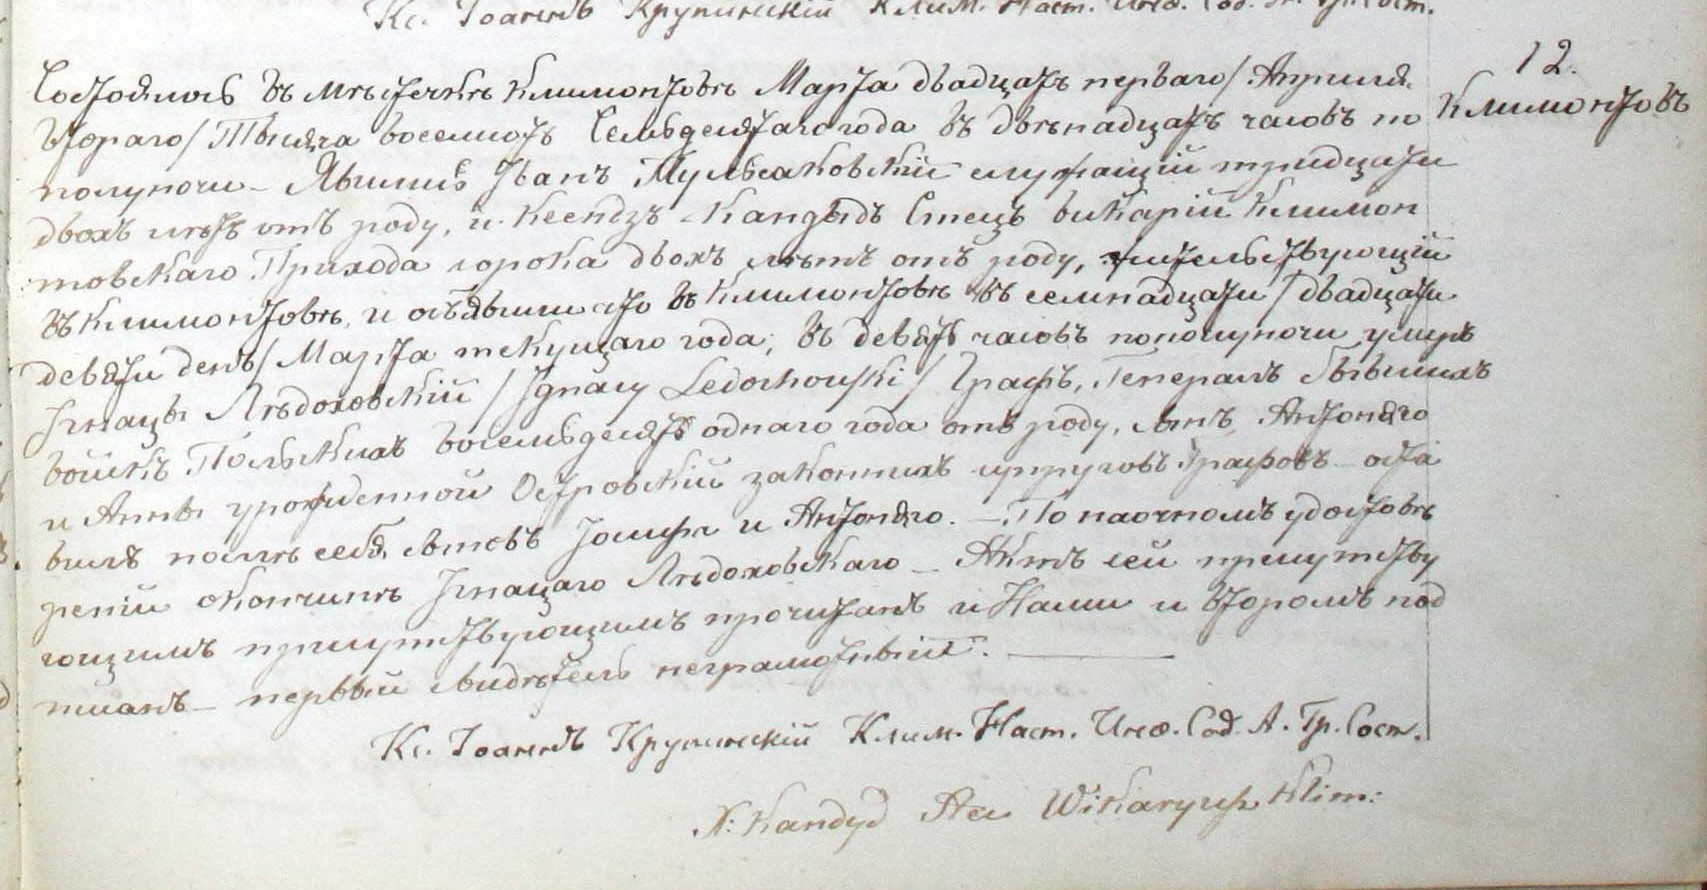 Кс. Іоаннъ Крупинскій Клим. Наст. Инѳ. Сод. А. Гр. Сост.
12.
Климонтовъ
Состоялось въ мѣстечкѣ Климонтовѣ Марта двадцать перваго / Апрѣля
втораго / Тысяча восемьсотъ Семьдесятаго года въ двѣнадцать часовъ по
полуночи – Явились Иванъ служащій тридцати
двохъ лѣтъ отъ роду, и Ксендзъ Кандыдъ викарій Климон
товскаго Прихода сорока двохъ лѣтъ отъ роду, жительствующій
въ Климонтовѣ, и объявили что въ Климонтовѣ въ семнадцати / двадцати
девяти день / Марта текущаго года, въ девять часовъ пополуночи умеръ
Игнацы Лѣдоховскій / Ignacy Ledochowski / Графъ, Генералъ бывшихъ
войскъ Польскихъ восемьдесятъ однаго года отъ роду, сынъ Антоняго
и Анны урожденной Островскій законныхъ супруговъ Графовъ – оста
вилъ послѣ себя сыновъ Іосифа и Антоняго. – По наочномъ удостовѣ
реніи о кончинѣ Игнацаго Лѣдоховскаго – Актъ сей присутству
ющимъ присутствующимъ прочитанъ и Нами и Вторымъ под
писанъ – первый свидѣтель неграмотный. —
Кс. Іоаннъ Крупинскій Клим. Наст. Инѳ. Сод. А. Гр. Сост.
X. Kandyd Wikaryusz Klim: